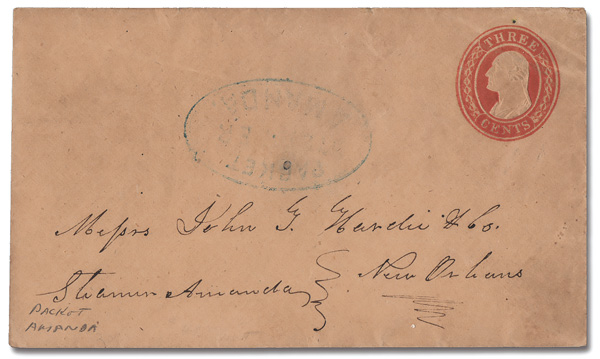 THREE
CENTS
PACKET
Messrs John G. Hardie & Co.
New Orleans
Steamer Amanda
PACKET
AMANDA